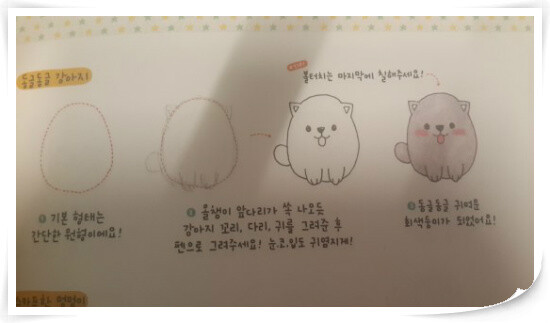 동글동글 강아지
볼터치는 마지막에 칠해주세요!
1 기본 형태는
간단한 원형이에요!
2 올챙이 앞다리가 쏙 나오듯
강아지 꼬리, 다리, 귀를 그려준 후
펜으로 그려주세요! 눈.코.입도 귀염지게!
3 동글동글 귀여운
회색둥이가 되었어요!